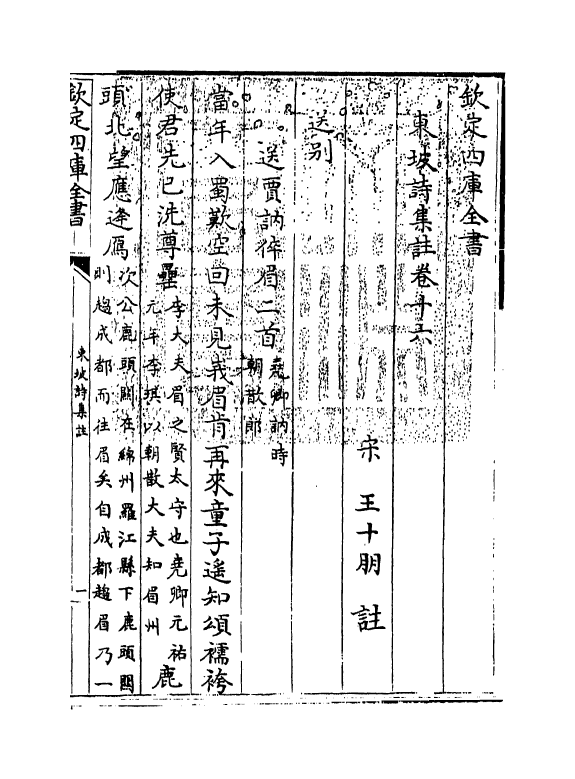 欽定四庫全書
東坡詩集註卷十六
宋 王十朋 註
送别
送賈訥倅眉二首堯卿訥時
朝散郎
當年入蜀歎空回未見峩眉肯再來童子遙知頌襦袴
使君先已洗尊罍李大夫眉之賢太守也堯卿元祐
元年李琪以朝散大夫知眉州鹿
頭北望應逢鴈次公鹿頭關在綿州羅江縣下鹿頭關
則趨成都而往眉矣自成都趨眉乃一
欽定四庫全書
東坡詩集註
一